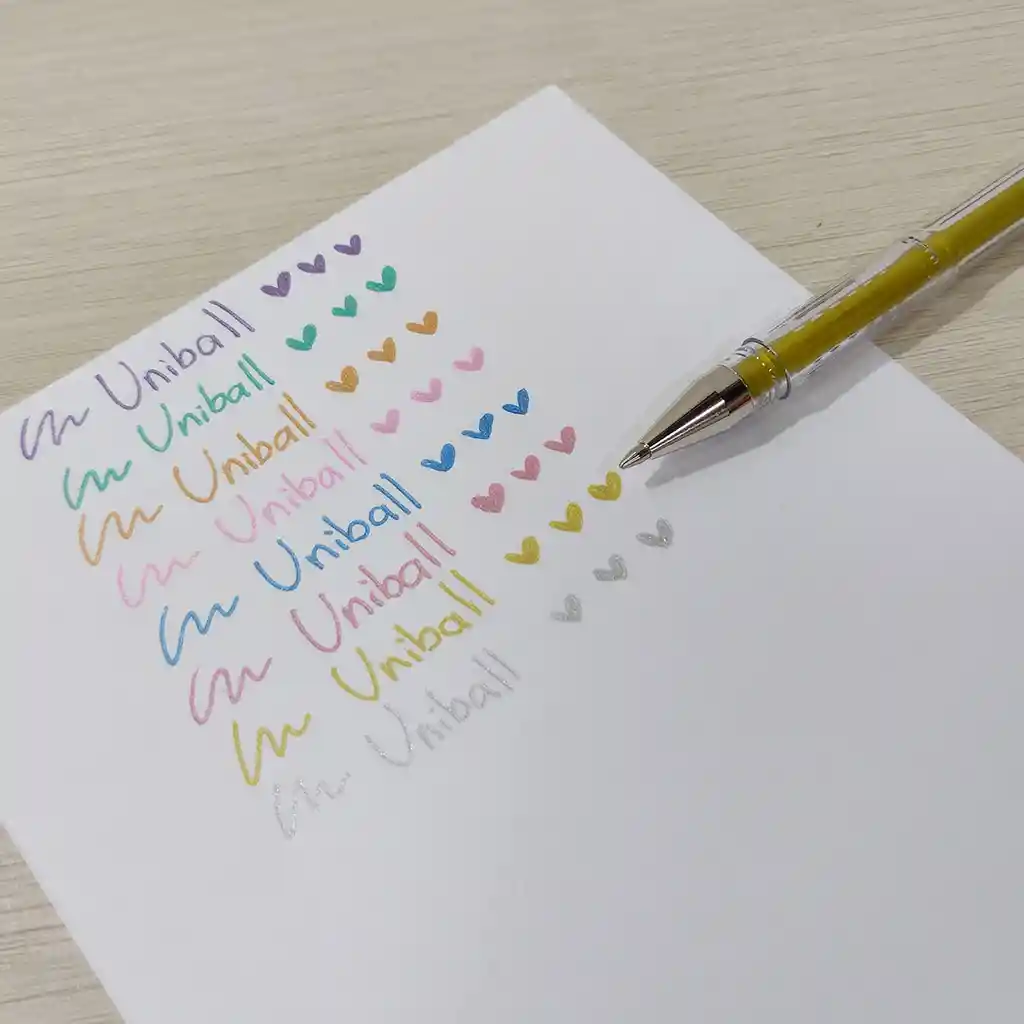 Uniball
Uniball
Uniball
Uniball
Uniball
Uniball
Uniball
Uniball